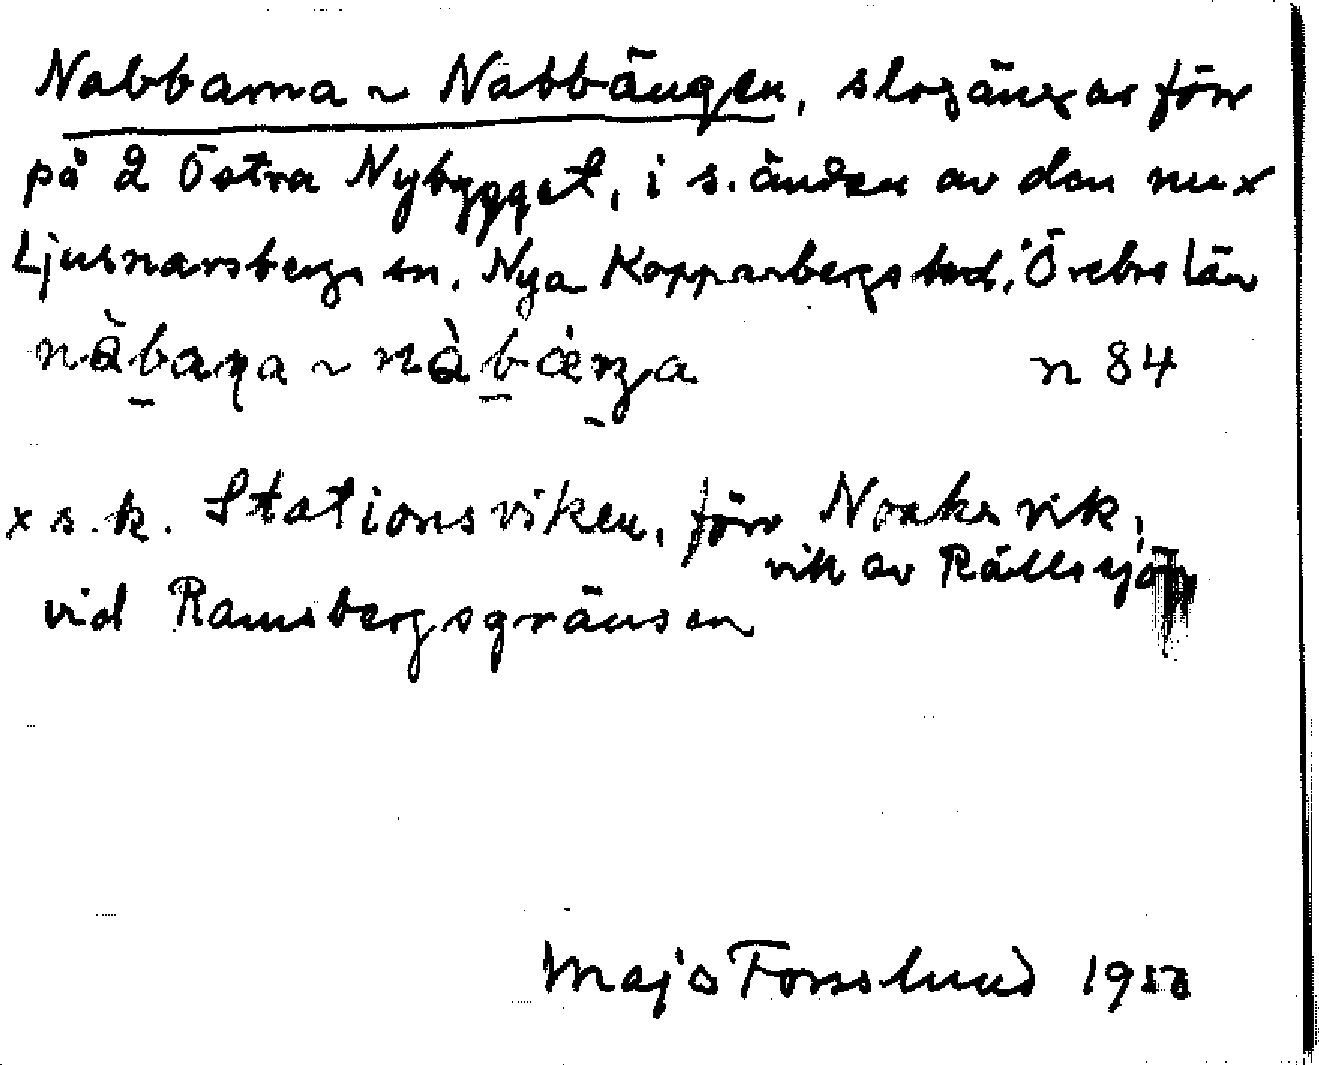 Nabbarna ~ Nabbängen, slogängar förr
på 2 Östra Nybygget, i s. änden av den nu x
Ljusnarsbergs sn. Nya Kopparbergs bsd, Örebro län
nàbaɳa ~ nàbæŋa n 84
x s.k. Stationsviken, förr Noaks vik,
vik av Rällssjön
vid Ramsbergsgränsen
Maja Forsslund